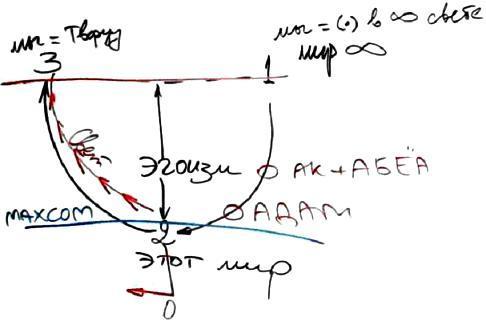 мы = Творцу
3
мы = (•) в ∞ свете
мир ∞
1
Свет
эгоизм
АК + АБЕА
МАХСОМ
АДАМ
2
этот мир
0